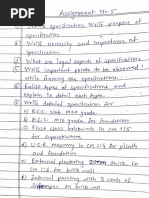 Assignment No-5
specification Write purpose of
specification
2) Write necessity and importance of
specification.
3) What are legal aspects of specification
Write important points to be observed
while framing the specifications.
Enlist types of specifications and
explain in detail each types.
Write detailed specification for
a) R.C.C slab M20 grade
b) R.C.C M20 grade for foundation
c) First class brickwork in cm 1:6
for superstructure
d) U.C.R masonry in cm 1:6 for plinth
and foundation
e) External plastering 20mm thick in
cm 1:6 for brick wall
f) Internal painting with 3 coats of
on brick wall